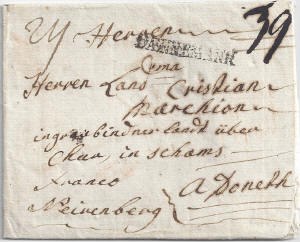 Herren 39
DANNEMARK
Herren Lans Cristian
Marchion
in graubindner landt über
Chur, in schams
Franco
A Doneth